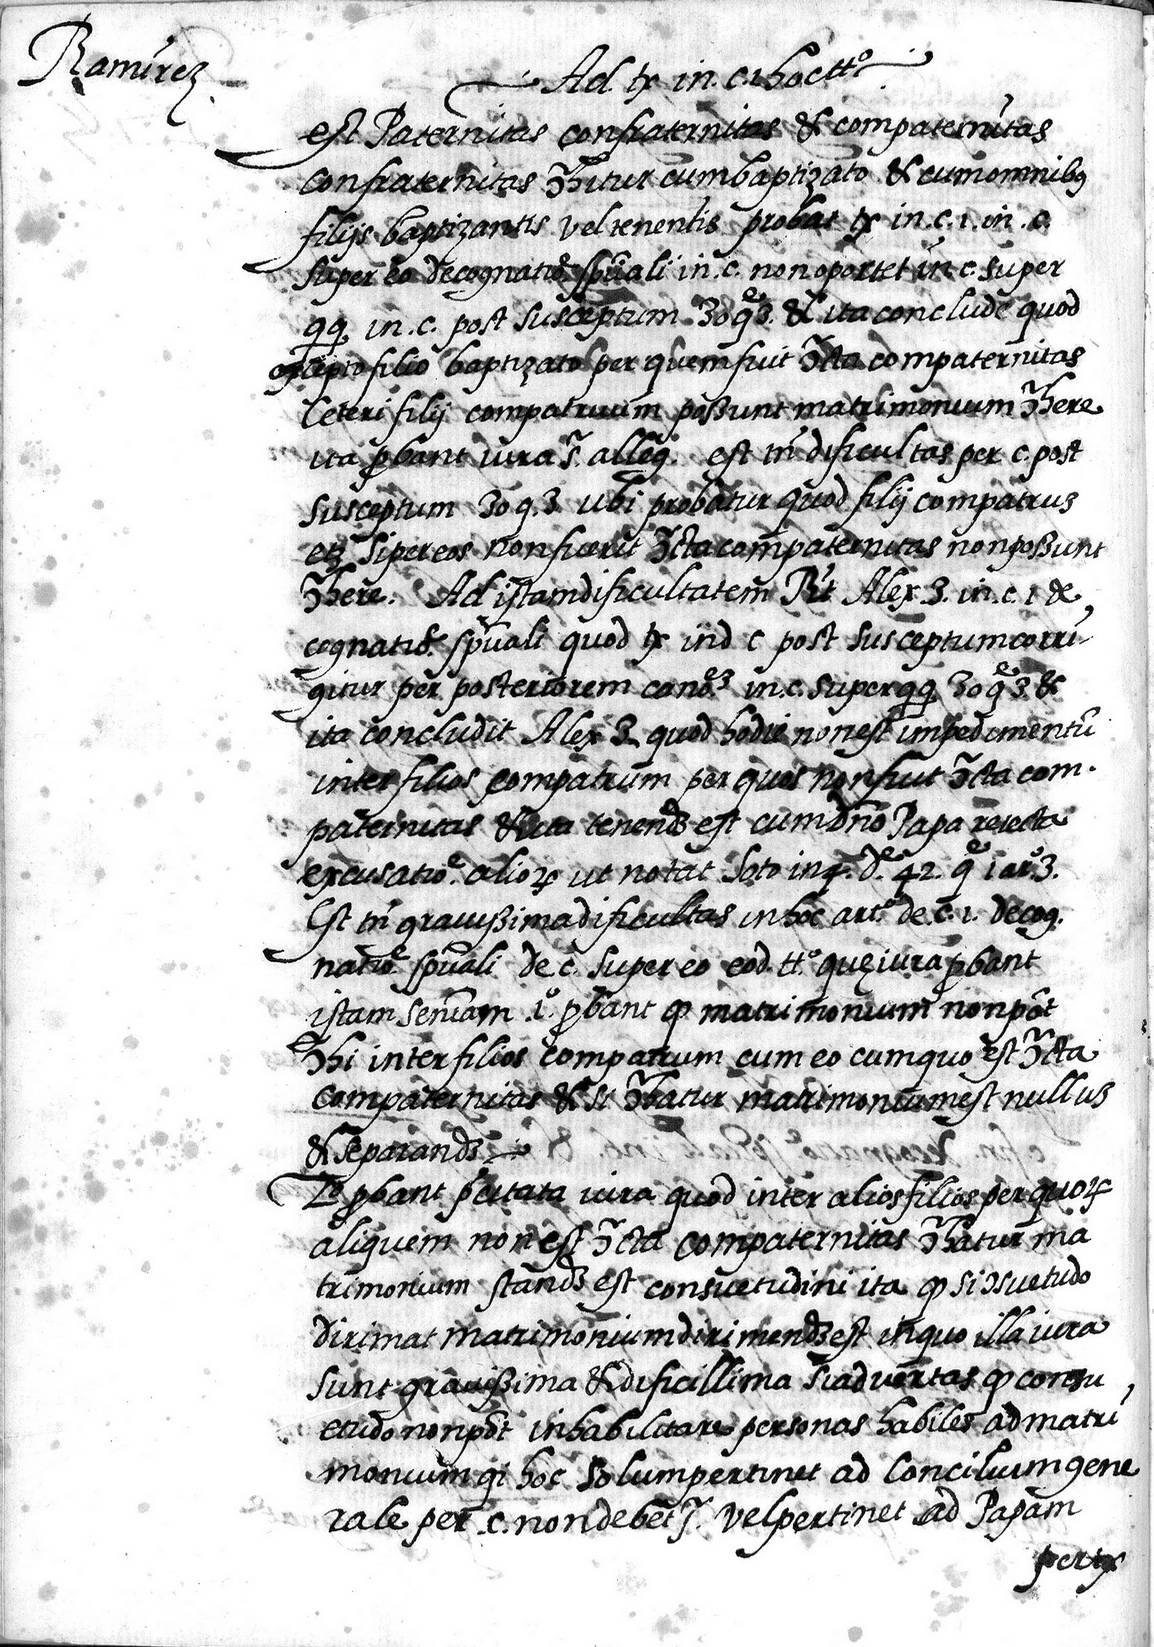 Ramirez
Ad. tx in. c. 1 hoc tt.º
est Paternitas confraternitas & compaternitas
confraternitas ꝯ̃hitur cum baptizato & cum omnibꝯ
filijs baptizantis vel tenentis probat tx in. c. 1. in. c.
super eo de cognatiõe spũali in. c. non oportet in c. super
qq̃. in. c. post susceptum 30 q̃ᵉ 3. & ita conclude quod
excepto filio baptizato per quem fuit ꝯ̃cta compaternitas
ceteri filij compatruum possunt matrimonium ꝯ̃here
ita ꝓbant iura s̃. alleg. est tñ dificultas per c. post
susceptum 30 q. 3 ubi probatur quod filij compatrus
etꝫ si per eos non fuerit ꝯ̃cta compaternitas non possunt
ꝯ̃here. Ad istam dificultatem Rĩt Alex 3. in. c. 1 de
cognatiõe spũali quod tx in d c post susceptum corri-
gitur per posteriorem canoẽꝫ in. c. super qq̃ 30 q̃ᵉ 3. &
ita concludit Alex 3 quod hodie non est impedimentũ
inter filios compatrum per quos non fuit ꝯ̃cta com-
paternitas & ita tenendꝫ est cum dño Papa reiecta
excusatiõe. alioꝝ ut notat Soto in 4. dᵉ. 42. qᵉ 1 arº 3.
Est tñ gravissima dificultas in hoc artº de c. 1. de cog.
natiõe spũali de c. super eo eod. tt.º quę iura ꝓbant
istam senĩam. 1º ꝓbant ꝙ matrimonium non põt
ꝯ̃hi inter filios compatrum cum eo cum quo est ꝯ̃cta
compaternitas & si ꝯ̃hatur matrimonium est nullus
& separandꝫ
2º ꝓbant p̃citata iura quod inter alios filios per quoꝝ
aliquem non est ꝯ̃cta compaternitas ꝯ̃hatur ma
trimonium standꝫ est consuetudini ita ꝙ si ꝯsuetudo
dirimat matrimonium dirimendꝫ est in quo illa iura
sunt gravissima & dificillima si advertas ꝙ consu
etudo non põt inhabilitare personas habiles ad matri
monium qi hoc solum pertinet ad Concilium gene
rale per c. non debet j̃. vel pertinet ad Papam
per tx